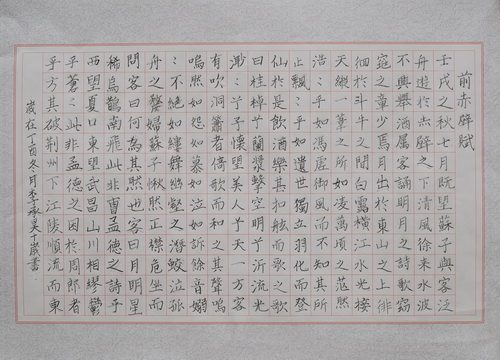 前赤壁賦
壬戌之秋七月既望蘇子與客泛
舟遊於赤壁之下清風徐来水波
不興舉酒属客誦明月之詩歌窈
窕之章少焉月出於東山之上徘
徊於斗牛之間白露橫江水光接
天縱一葦之所如凌萬頃之茫然
浩〻乎如馮虛御風而不知其所
止飄〻乎如遺世獨立羽化而登
仙於是飲酒樂甚扣舷而歌之歌
曰桂棹兮蘭漿擊空明兮泝流光
渺〻兮予懷望美人兮天一方客
有吹洞簫者倚歌而和之其聲嗚
嗚然如怨如慕如泣如訴餘音嫋
〻不絕如縷舞幽壑之潛蛟泣孤
舟之嫠婦蘇子愀然正襟危坐而
問客曰何為其然也客曰月明星
稀烏鵲南飛此非曹孟德之詩乎
西望夏口東望武昌山川相繆鬱
乎蒼〻此非孟德之困於周郎者
乎方其破荆州下江陵順流而東
歲在丁酉冬月李承昊十歲書